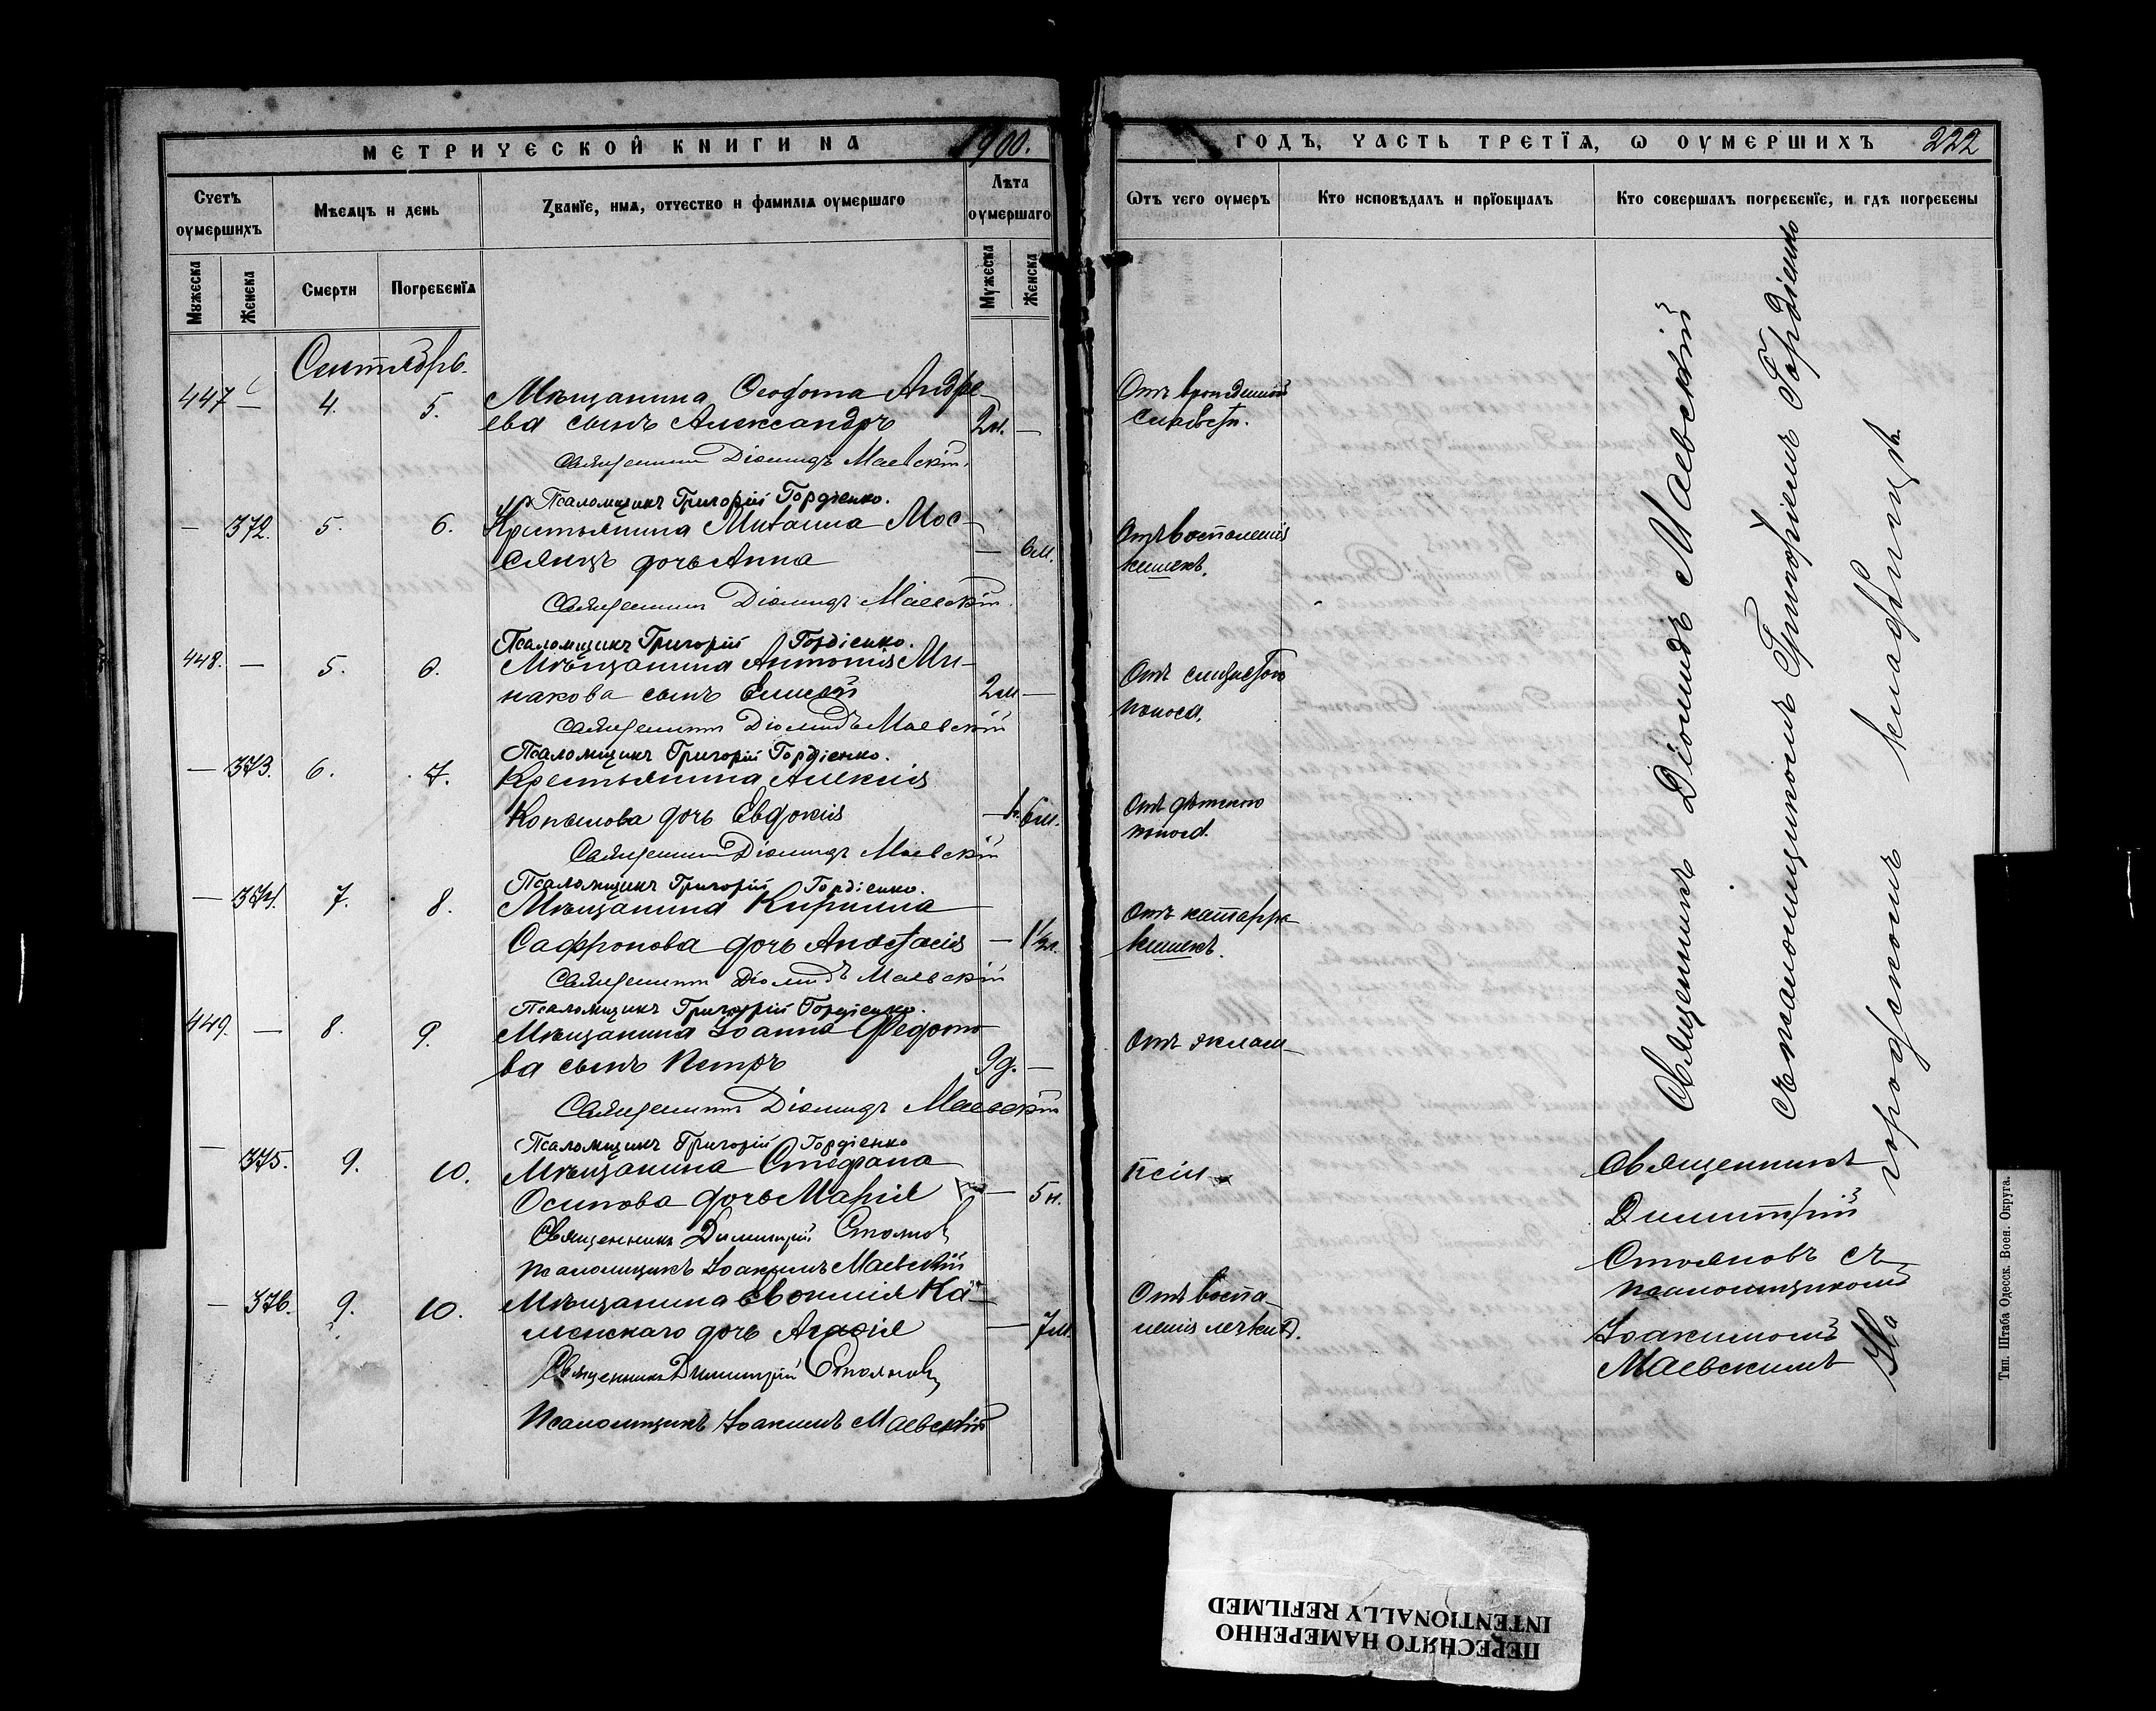 МЕТРИЧЕСКОЙ КНИГИ НА 1900.
Счетъ оумершихъ
Мѣсяцъ и день
Званїе, имя, отчество и фамилїя оумершаго
Лѣта оумершаго
Мужеска
Женска
Смерти
Погребенїя
Мужеска
Женска
Сентябрь.
447 — 4. 5. Мѣщанина Ѳеодота Андре-
ева сынъ Александръ 2н. —
Священникъ Діомидъ Маевскій
Псаломщикъ Григорій Гордіенко.
— 372. 5. 6. Крестьянина Михаила Мос-
сянцъ дочь Анна — 6м.
Священникъ Діомидъ Маевскій
Псаломщикъ Григорій Гордіенко.
448. — 5. 6. Мѣщанина Антонія Ми-
накова сынъ Елисей 2м —
Священникъ Діомидъ Маевскій
Псаломщикъ Григорій Гордіенко.
— 373. 6. 7. Крестьянина Алексія
Копылова дочь Евдокія — 6м.
Священникъ Діомидъ Маевскій
Псаломщикъ Григорій Гордіенко.
— 374. 7. 8. Мѣщанина Кирилла
Сафронова дочь Анастасія — 1½
Священникъ Діомидъ Маевскій
Псаломщикъ Григорій Гордіенко.
449. — 8. 9. Мѣщанина Іоанна Федото-
ва сынъ Петръ 9д. —
Священникъ Діомидъ Маевскій
Псаломщикъ Григорій Гордіенко
— 375. 9. 10. Мѣщанина Стефана
Осипова дочь Марія — 5н.
Священникъ Димитрій Стояновъ
Псаломщикъ Іоакимъ Маевскій
— 376. 9. 10. Мѣщанина Евѳимія Ка-
менскаго дочь Агафія — 7м.
Священникъ Димитрій Стояновъ
Псаломщикъ Іоакимъ Маевскій
ГОДЪ, ЧАСТЬ ТРЕТЇЯ, Ѡ ОУМЕРШИХЪ 222
Ѿтъ чего оумеръ
Кто исповѣдалъ и прїобщалъ
Кто совершалъ погребенїе, и гдѣ погребены
Отъ врожденной
слабости.
Отъ воспаленія
кишекъ.
Отъ слизистого
поноса.
Отъ дѣтского
поноса.
Отъ катарра
кишекъ.
Отъ эклам-
псіи
Отъ воспа-
ленія легкихъ.
Священникъ Діомидъ Маевскій
съ псаломщикомъ Григоріемъ Гордіенко
На городскомъ кладбищѣ.
Священникъ
Димитрій
Стояновъ съ
псаломщикомъ
Іоакимомъ
Маевскимъ
Тип. Штаба Одесск. Воен. Округа.
ПЕРЕСНЯТО НАМЕРЕННО
INTENTIONALLY REFILMED